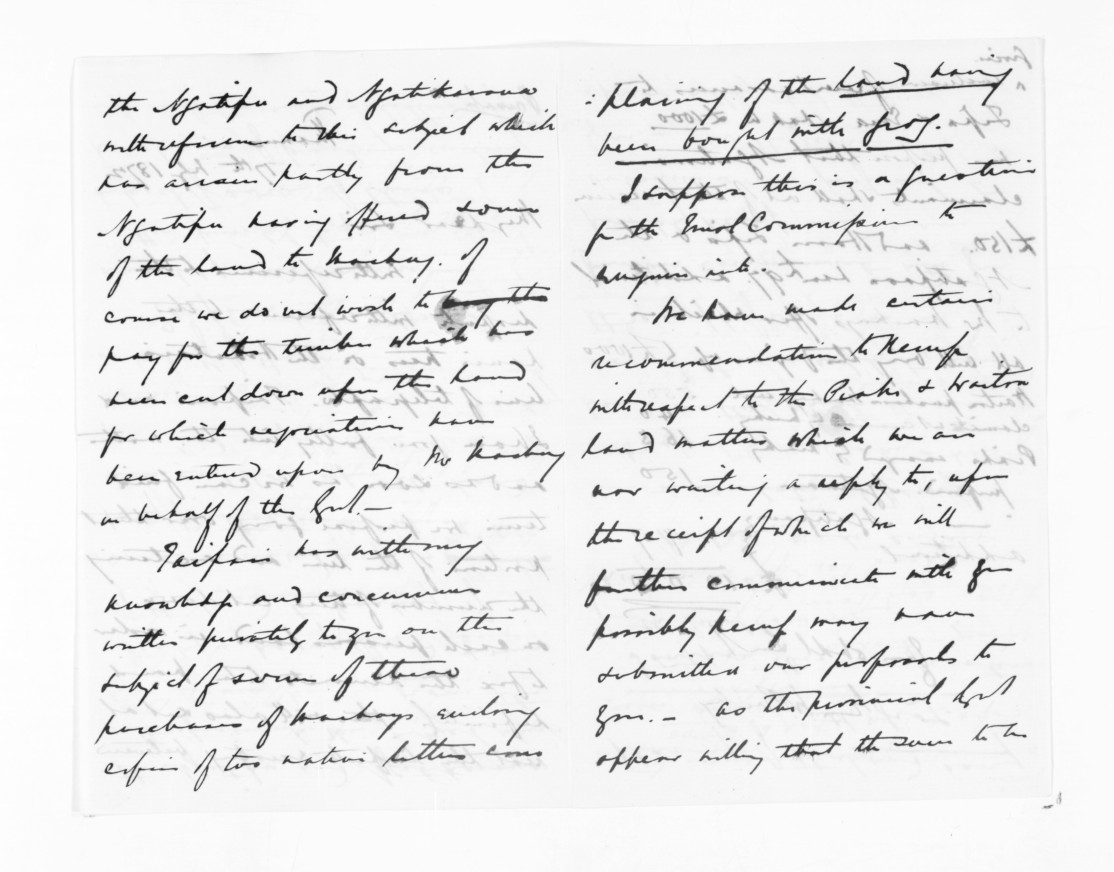 the Ngatipu and Ngatikarana
with reference to this subject which
has arisen partly from the
Ngatipu having offered some
of the land to Mackay. Of
course we do not wish to buy the
pay for the timber which has
been cut down upon the land
for which negociations have
been entered upon by Mr Mackay
on behalf of the Govt. —
Taipari has with my
knowledge and concurrence
written privately to you on the
subject of some of these
purchases of Mackays enclosing
copies of two native letters com
: plaining of the land having
been bought with Grog.
I suppose this is a question
for the Commission to
enquire into.
We have made certain
recommendation to Kemp
with respect to the Piako & Waitoa
land matters which we are
now waiting a reply to, upon
the receipt of which we will
further communicate with you
possibly Kemp may have
submitted our proposals to
you. — as the provincial Govt
appear willing that the same to be